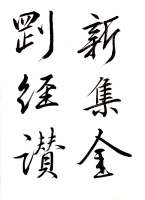 新集金
剛經讃